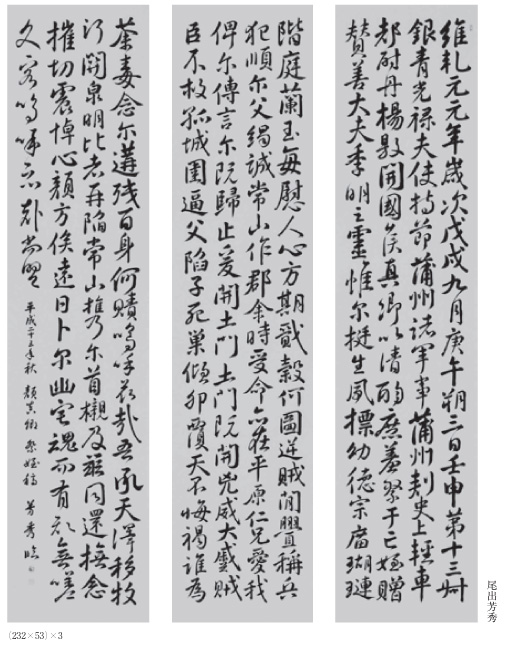 維乾元元年歳次戊戌九月庚午朔三日壬申第十三叔
銀青光禄夫使持節蒲州諸軍事蒲州刺史上輕車
都尉丹楊縣開國侯真卿以清酌庶羞祭于亡姪贈
賛善大夫季明之靈惟尔挺生夙標幼德宗廟瑚璉
階庭蘭玉毎慰人心方期戩穀何圖逆賊閒釁稱兵
犯順尔父竭誠常山作郡余時受命亦在平原仁兄愛我
俾尔傳言尔既歸止爰開土門土門既開兇威大蹙賊
臣不救孤城圍逼父陷子死巢傾卵覆天不悔禍誰為
荼毒念尔遘残百身何贖嗚呼哀哉吾承天澤移牧
河関泉明比者再陷常山攜尔首櫬及茲同還撫念
摧切震悼心顔方俟遠日卜尔幽宅魂而有知無嗟
久客嗚呼哀哉尚饗 平成二十五年秋 顔真卿 祭姪稿 芳秀臨
尾出芳秀
(232×53)×3